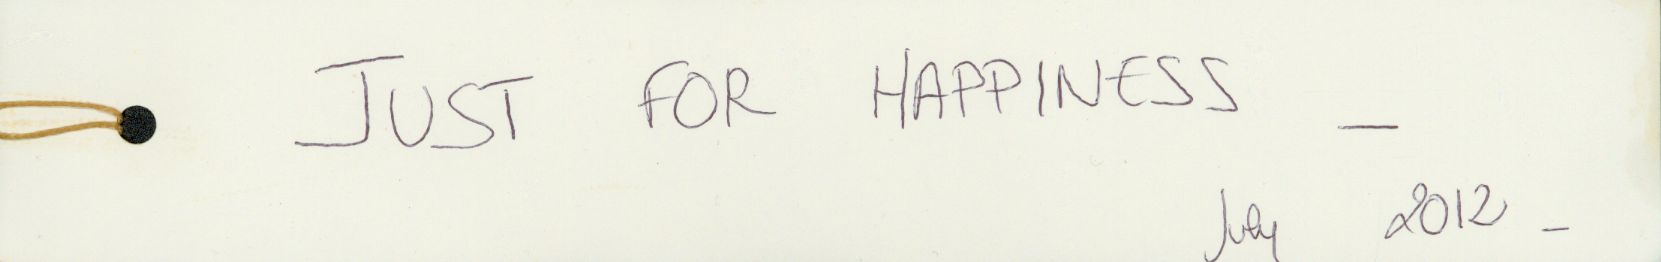 JUST FOR HAPPINESS _
July 2012 _